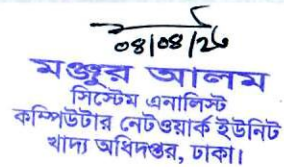 ০৪/০৪/২৮
মঞ্জুর আলম
সিস্টেম এনালিস্ট
কম্পিউটার নেটওয়ার্ক ইউনিট
খাদ্য অধিদপ্তর, ঢাকা।